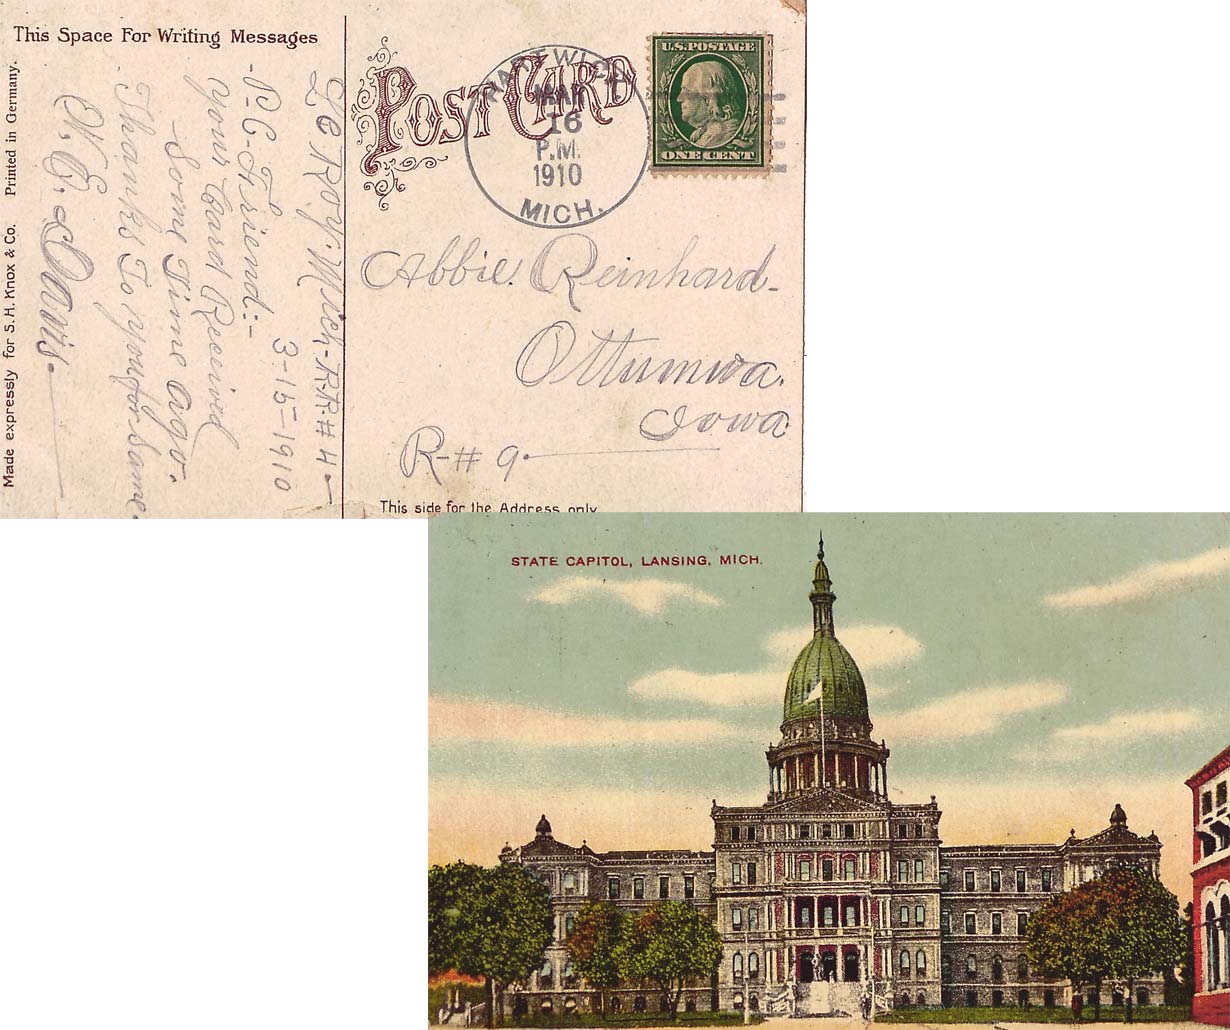 This Space For Writing Messages
Printed in Germany.
Made expressly for S.H. Knox & Co.
LE Roy. Mich. R.R. # 4.
3-15-1910
P.C. Friend:-
Your Card Received
Some Time ago.
Thanks To you for Same.
E. Davis.
POST CARD
MAR
16
P.M.
1910
MICH.
U.S. POSTAGE
ONE CENT
Abbie. Reinhard-
Ottumwa.
Iowa
R-# 9.
This side for the Address only
STATE CAPITOL, LANSING, MICH.